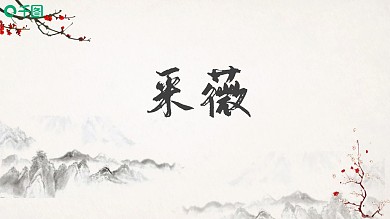 千图
采薇